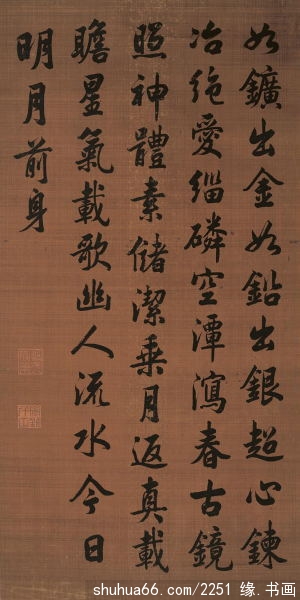 如鑛出金如鉛出銀超心鍊
冶絶愛緇磷空潭瀉春古鏡
照神體素儲潔乗月返真載
瞻星氣載歌幽人流水今日
明月前身
shuhua66.com/2251 缘.书画